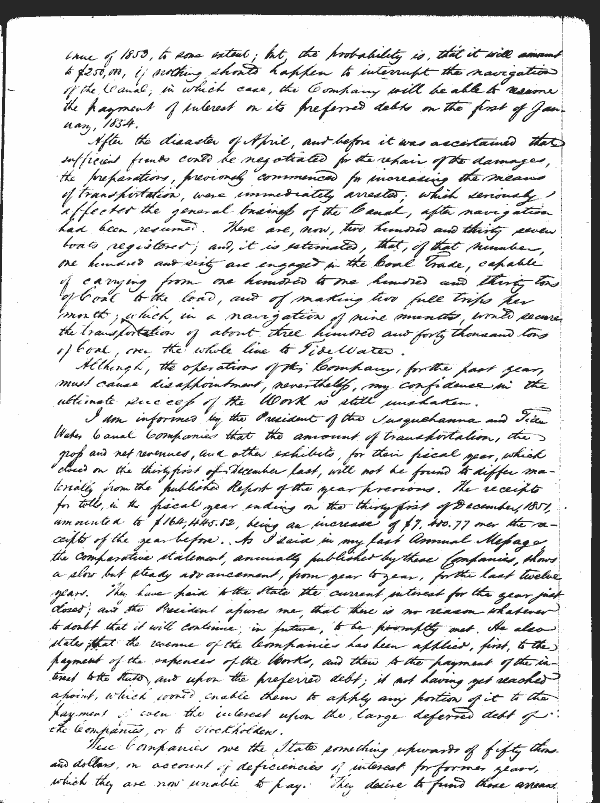 enue of 1853, to some extent; but, the probability is, that it will amount
to $250,000, if nothing should happen to interrupt the navigation
of the Canal, in which case, the Company will be able to resume
the payment of interest on its preferred debts on the first of Jan-
uary, 1854.
After the disaster of April, and before it was ascertained that
sufficient funds could be negotiated for the repair of the damages,
the preparations, previously commenced for increasing the means
of transportation, were immediately arrested; which seriously
affected the general business of the Canal, after navigation
had been resumed. There are, now, two hundred and thirty seven
boats registered; and, it is estimated, that, of that number,
one hundred and sixty are engaged in the Coal Trade, capable
of carrying from one hundred to one hundred and thirty tons
of Coal to the load, and of making two full trips per
month; which, in a navigation of nine months, would secure
the transportation of about three hundred and forty thousand tons
of Coal, over the whole line to Tide Water.
Although, the operations of this Company, for the past year,
must cause disappointment, nevertheless, my confidence in the
ultimate success of the Work is still unshaken.
I am informed by the President of the Susquehanna and Tide
Water Canal Companies that the amount of transportation, the
gross and net revenues, and other exhibits, for their fiscal year, which
closed on the thirty first of December last, will not be found to differ ma-
terially from the published Report of the year previous. The receipts
for tolls, in the fiscal year ending on the thirty first of December, 1851,
amounted to $164,445.52, being an increase of over the re-
ceipts of the year before. As I said in my last Annual Message
the comparative statement, annually published by these Companies, shows
a slow but steady advancement, from year to year, for the last twelve
years. They have paid to the State the current interest for the year just
closed; and the President assures me, that there is no reason whatever
to doubt that it will continue, in future, to be promptly met. He also
states that the revenue of the Companies has been applied, first, to the
payment of the expenses of the Works, and then to the payment of the in-
terest to the State, and upon the preferred debt; it not having yet reached
a point, which would enable them to apply any portion of it to the
payment of even the interest upon the large deferred debt of
the Companies, or to Stockholders.
These Companies owe the State something upwards of fifty thous
and dollars, on account of deficiencies of interest for former years,
which they are now unable to pay. They desire to fund those arrears